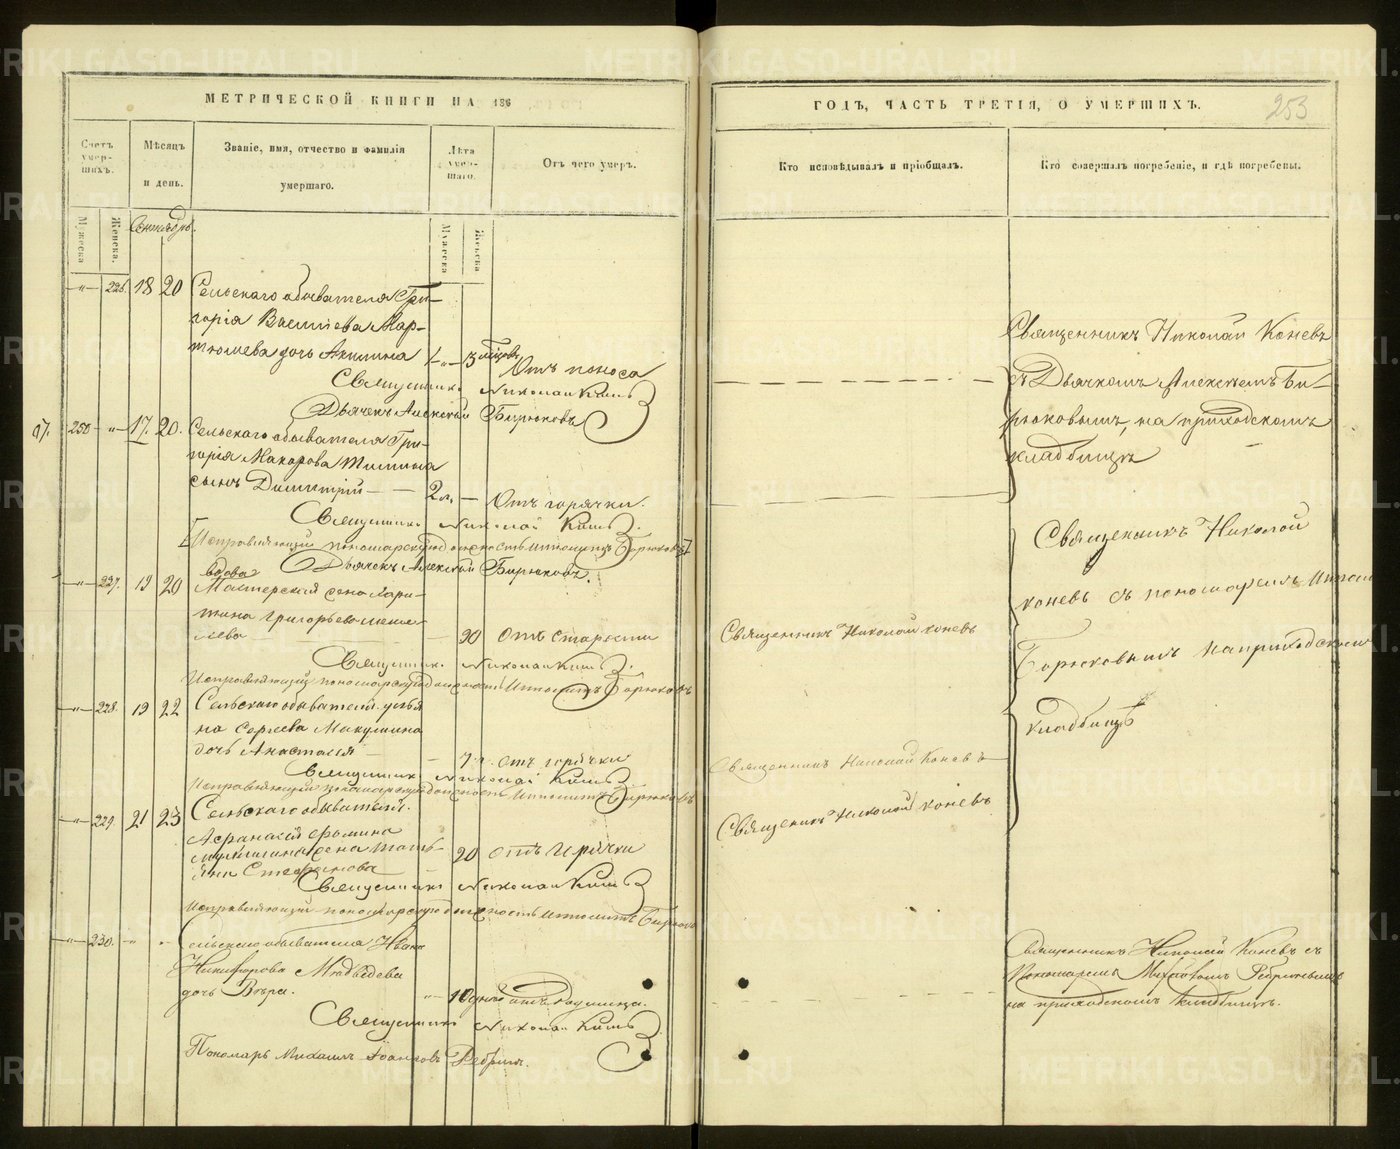 МЕТРИЧЕСКОЙ КНИГИ НА 186
Счетъ умер-шихъ.
Мѣсяцъ и день.
Званіе, имя, отчество и фамилія умершаго.
Лѣта умер-шаго.
Отъ чего умеръ.
Мужеска
Женска.
Сентябрь.
Мужеска
Женска
226. 18 20 Сельскаго обывателя Гри-
горія Васильева Мар-
тюшева дочь Акилина 3 мѣсяц. Отъ поноса
Священникъ Николай Коневъ
Дьячекъ Алексѣй Бирюковъ
97. 250 17. 20. Сельскаго обывателя Гри-
горія Макарова
сынъ Димитрій 2 л. Отъ горячки.
Священникъ Николай Коневъ
Исправляющій пономарскую должность Ипполитъ Бирюковъ
Дьячекъ Алексѣй Бирюковъ.
227. 19 20 вдова
Мастерская жена Хари-
тина Григорьева
лева 90 отъ старости
Священникъ Николай Коневъ
Исправляющій пономарскую должность Ипполитъ Бирюковъ
228. 19 22 Сельскаго обывателя Улья-
на Сергѣева Микушина
дочь Анастасія 7 л. отъ горячки
Священникъ Николай Коневъ
Исправляющій пономарскую должность Ипполитъ Бирюковъ
229. 21 23 Сельскаго обывателя
Афанасія Фомина
жена Тать-
яна Стефанова 20 отъ горячки
Священникъ Николай Коневъ
Исправляющій пономарскую должность Ипполитъ Бирюковъ
230. Сельскаго обывателя Ивана
Никифорова Медведева
дочь Вѣра. 10 дней отъ родимца.
Священникъ Николай Коневъ
Пономарь Михаилъ Іоанновъ Ребринъ.
ГОДЪ, ЧАСТЬ ТРЕТІЯ, О УМЕРШИХЪ.
253
Кто исповѣдывалъ и пріобщалъ.
Кто совершалъ погребеніе, и гдѣ погребены.
Священникъ Николай Коневъ
съ Дьячкомъ Алексѣемъ Би-
рюковымъ, на приходскомъ
кладбищѣ
Священникъ Николай
Коневъ съ пономаремъ Иппол
Бирюковымъ на приходскомъ
кладбищѣ
Священникъ Николай Коневъ
Священникъ Николай Коневъ
Священникъ Николай Коневъ
Священникъ Николай Коневъ съ
Пономаремъ Михаиломъ Ребринымъ
на приходскомъ кладбищѣ.
METRIKI.GASO-URAL.RU